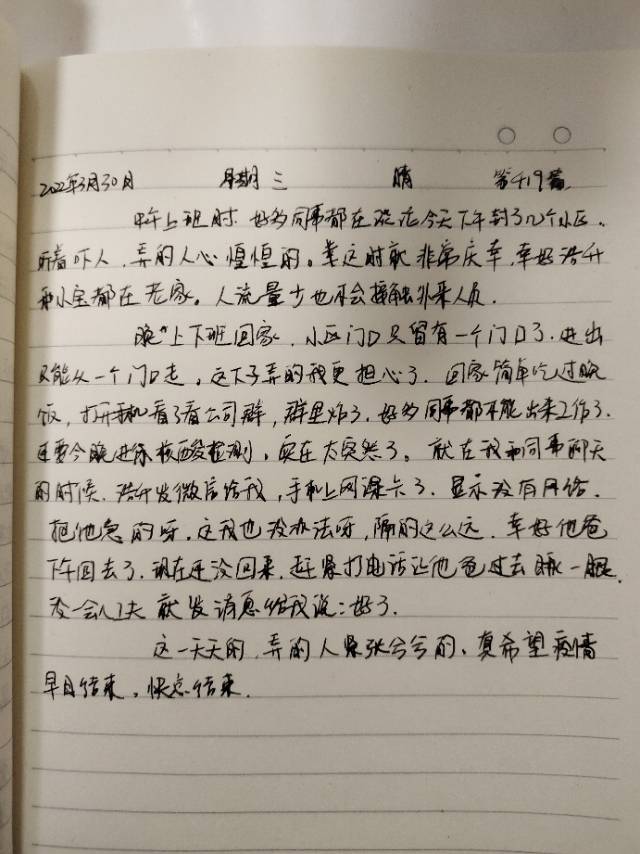 2022年3月30日 星期三 晴 第419篇
中午上班时，好多同事都在议论今天下午封了几个小区。
听着吓人，弄的人心惶惶的。拿这时就非常庆幸，幸好浩升
和小宝都在老家。人流量少也不会接触外来人员。
晚上下班回家，小区门口只留有一个门口了，进出
只能从一个门口走，这下子弄的我更担心了。回家简单吃过晚
饭，打开手机看了看公司群，群里炸了，好多同事都不能出来工作了，
还要今晚进行核酸检测，实在太突然了。就在我和同事聊天
的时候，浩升发微信给我，手机上网课卡了，显示没有网络，
把他急的呀，这我也没办法呀，隔的这么远，幸好他爸
下午回去了，现在还没回来，赶紧打电话让他爸过去瞅一眼，
没一会儿工夫就发消息给我说：好了。
这一天天的，弄的人紧张兮兮的、真希望疫情
早日结束，快点结束。